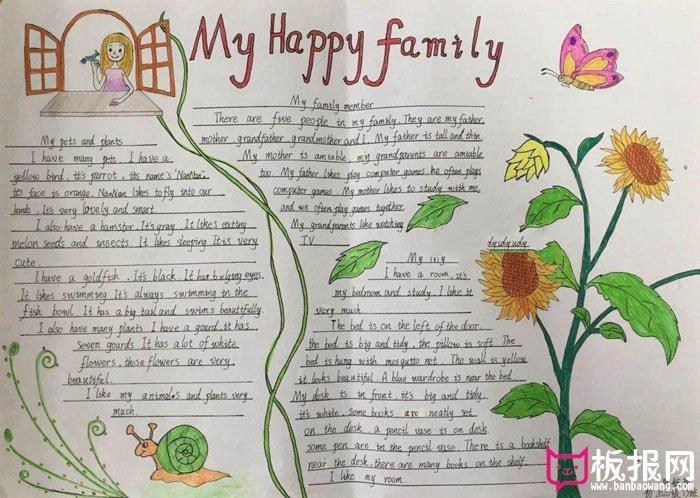 My Happy family
My pets and plants
I have many pets. I have a
yellow bird. it's parrot, it's name's "NanNan".
it's face is orange. NanNan likes to fly into our
hands. It's very lovely and smart.
I also have a hamster. It's gray. It likes eating
melon seeds and insects. It likes sleeping. It is very
cute.
I have a goldfish. It's black. It has bulging eyes.
It likes swimming. It's always swimming in the
fish bowl. It has a big tail and swims beautifully.
I also have many plants. I have a gourd, it has
seven gourds. It has a lot of white
flowers, those flowers are very
beautiful.
I like my animals and plants very
much.
My family member
There are five people in my family. They are my father,
mother, grandfather, grandmother and I. My father is tall and thin.
My mother is amiable, my grandparents are amiable
too. My father likes play computer games. he often plays
computer games. My mother likes to study with me,
and we often play games together.
My grandparents like watching
TV
My
I have a room, it's
my bedroom and study. I like it
very much.
The bed is on the left of the door.
the bed is big and tidy, the pillow is soft. The
bed is hung with mosquito net. The wall is yellow
it looks beautiful. A blue wardrobe is near the bed.
My desk is in front, it's big and tidy
it's white, some books are neatly set
on the desk, a pencil vase is on desk.
some pen are in the pencil vase. There is a bookshelf
near the desk, there are many books on the shelf.
I like my room.
板报网
www.banbaowang.com